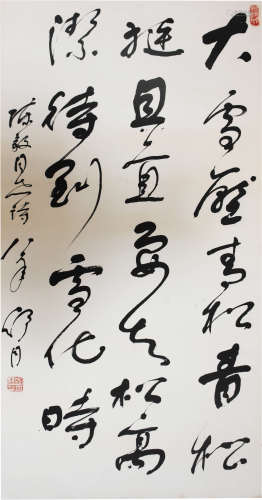 大雪壓青松青松
挺且直要知松高
潔待到雪化時
陳毅同志詩